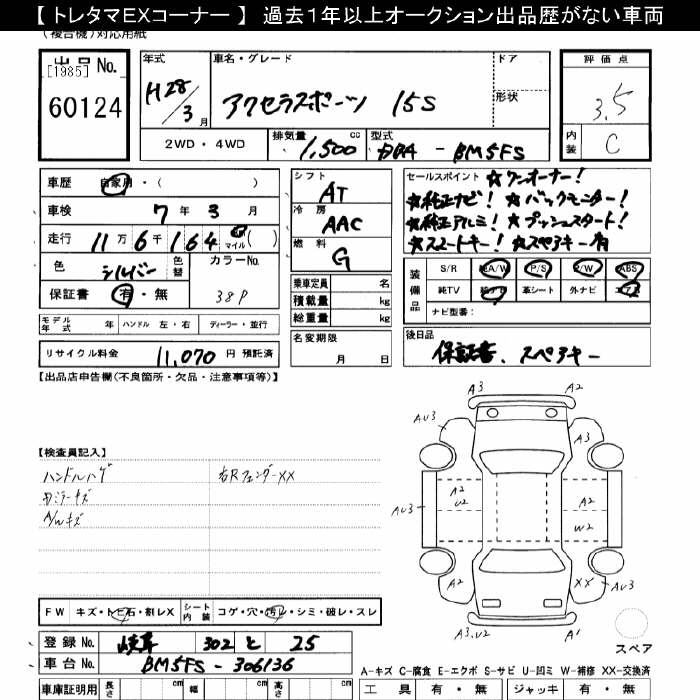 【トレタマEXコーナー 】 過去1年以上オークション出品歴がない車両
(複合機)対応用紙
出品 No.
[1985]
60124
年式
H28/3月
車名・グレード
アクセラスポーツ 15S
ドア
形状
評価点
3.5
内装
C
2WD・4WD
排気量
1,500 cc
型式
DBA - BM5FS
車歴
自家用・( )
車検
7年3月
走行
11万6千164 マイル( )
色
シルバー
色替
カラーNo.
38P
保証書
有・無
シフト
AT
冷房
AAC
燃料
G
乗車定員 名
積載量 kg
総重量 kg
セールスポイント ☆ワンオーナー!
☆純正ナビ! ☆バックモニター!
☆純正アルミ! ☆プッシュスタート!
☆スマートキー! ☆スペアキー有
装備品
S/R 純A/W P/S P/W ABS
純TV 純ナビ 革シート 外ナビ エアB
ナビ型番:
モデル年式 年 ハンドル 左・右 ディーラー・並行
名変期限
月 日
後日品
保証書、スペアキー
リサイクル料金 11,070 円 預託済
【出品店申告欄(不良箇所・欠品・注意事項等)】
【検査員記入】
ハンドルハゲ
右Rフェンダーxx
ミラーキズ
A/Wキズ
A3
A2
AU3
AU3
A2
U2
A2
W2
AU3
A2
XX
AU3
A3.U2
A1
スペア
FW キズ・トビ石・割レX シート内装 コゲ・穴・汚レ・シミ・破レ・スレ
登録 No. 岐阜 302 と 25
車台 No. BM5FS-306136
A-キズ C-腐食 E-エクボ S-サビ U-凹ミ W-補修 XX-交換済
車庫証明用 長さ cm 幅 cm 高さ cm
工具 有・無 ジャッキ 有・無